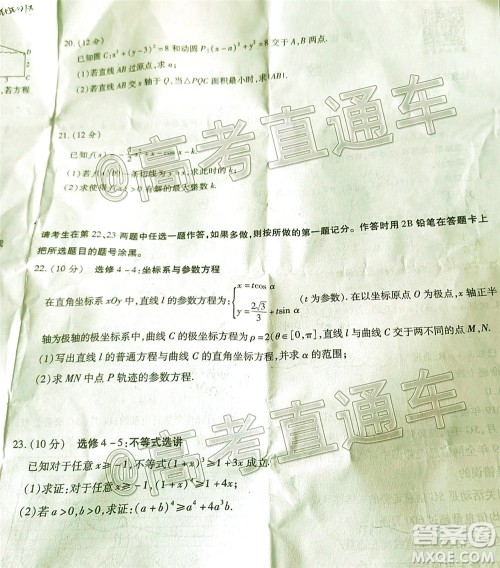 20. (12分)
已知圆 C:x²+(y-3)²=8和动圆 P:(x-a)²+y²=8交于 A,B 两点.
(1)若直线 AB 过原点,求 a;
(2)若直线 AB 交 x 轴于 Q,当△PQC 面积最小时,求|AB|.
21. (12分)
已知 f(x)= x²+x-cos x-k.
(1)若 f(x) 求此时的 k;
(2)求使得 f(x) 解的最大整数 k.
请考生在第 22、23 两题中任选一题作答,如果多做,则按所做的第一题记分。作答时用 2B 铅笔在答题卡上
把所选题目的题号涂黑。
22. (10分) 选修 4-4:坐标系与参数方程
在直角坐标系 xOy 中,直线 l 的参数方程为:{x=tcos α
y=2√3/3+tsin α (t 为参数). 在以坐标原点 O 为极点,x 轴正半
轴为极轴的极坐标系中,曲线 C 的极坐标方程为 ρ=2(θ∈[0,π],直线 l 与曲线 C 交于两不同的点 M,N.
(1)写出直线 l 的普通方程与曲线 C 的直角坐标方程,并求出 α 的范围;
(2)求 MN 中点 P 轨迹的参数方程.
23. (10分) 选修 4-5:不等式选讲
已知对于任意 x≥-1,不等式(1+x)³≥1+3x 成立.
(1)求证:对于任意 x≥-1,(1+x)⁴≥1+4x;
(2)若 a>0,b>0,求证:(a+b)⁴≥a⁴+4a³b.
@高考直通车
@高考直通车
答案圈
MXQE.COM